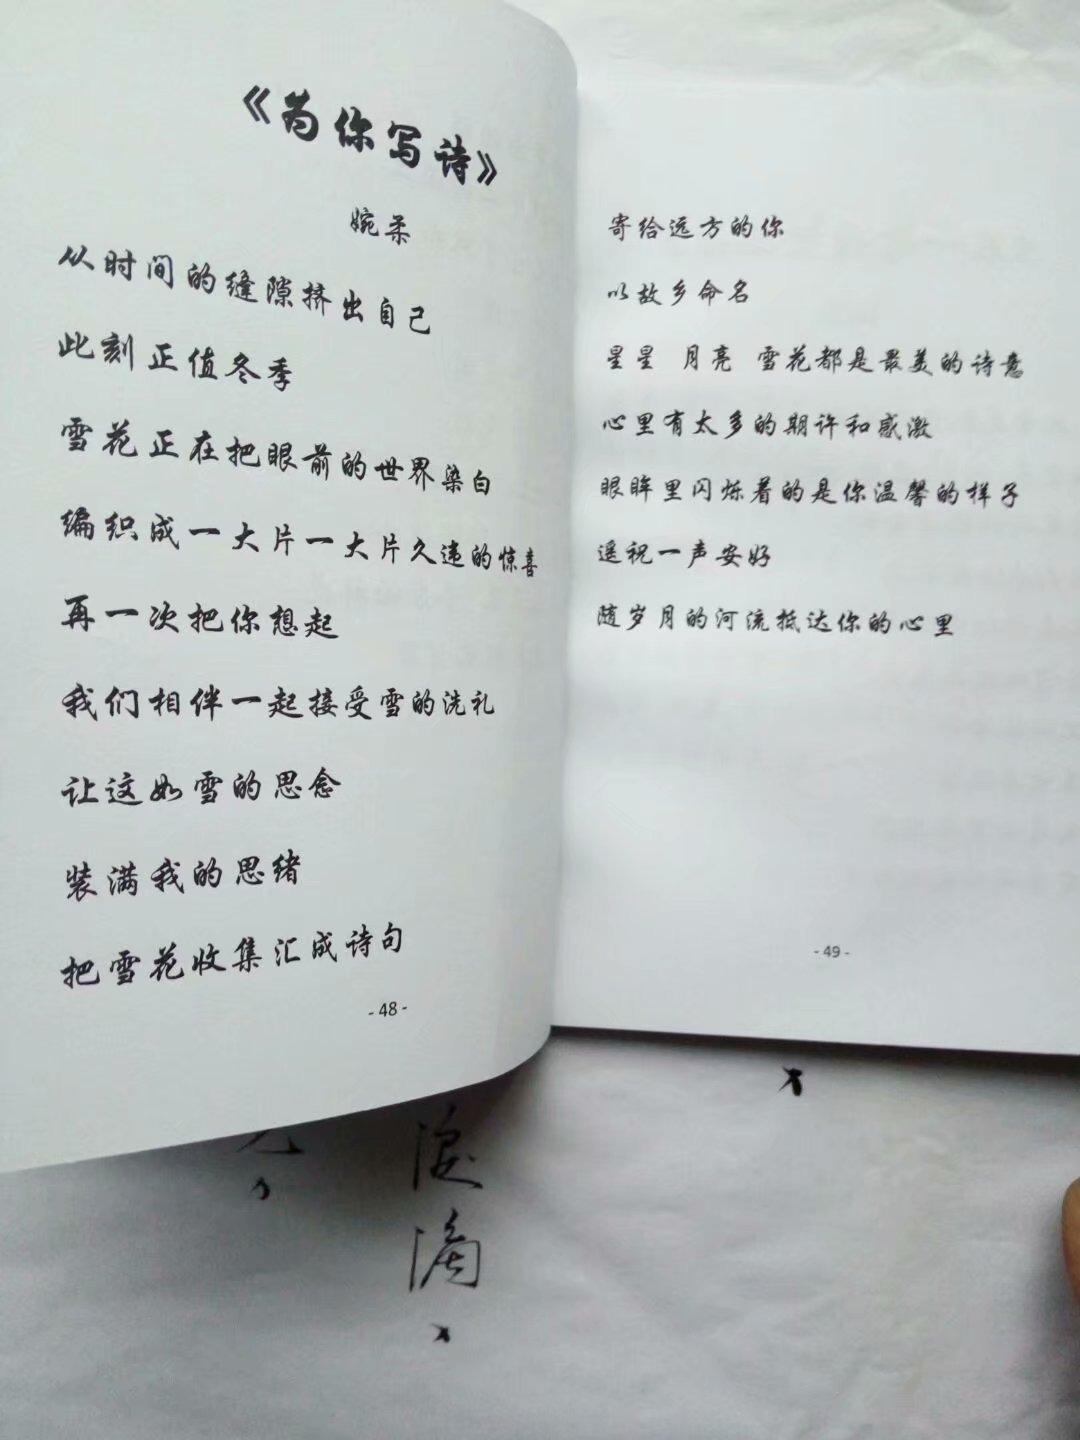 《为你写诗》
婉柔
从时间的缝隙挤出自己
此刻正值冬季
雪花正在把眼前的世界染白
编织成一大片一大片久违的惊喜
再一次把你想起
我们相伴一起接受雪的洗礼
让这如雪的思念
装满我的思绪
把雪花收集汇成诗句
- 48 -
寄给远方的你
以故乡命名
星星 月亮 雪花都是最美的诗意
心里有太多的期许和感激
眼眸里闪烁着的是你温馨的样子
遥祝一声安好
随岁月的河流抵达你的心里
- 49 -
滴